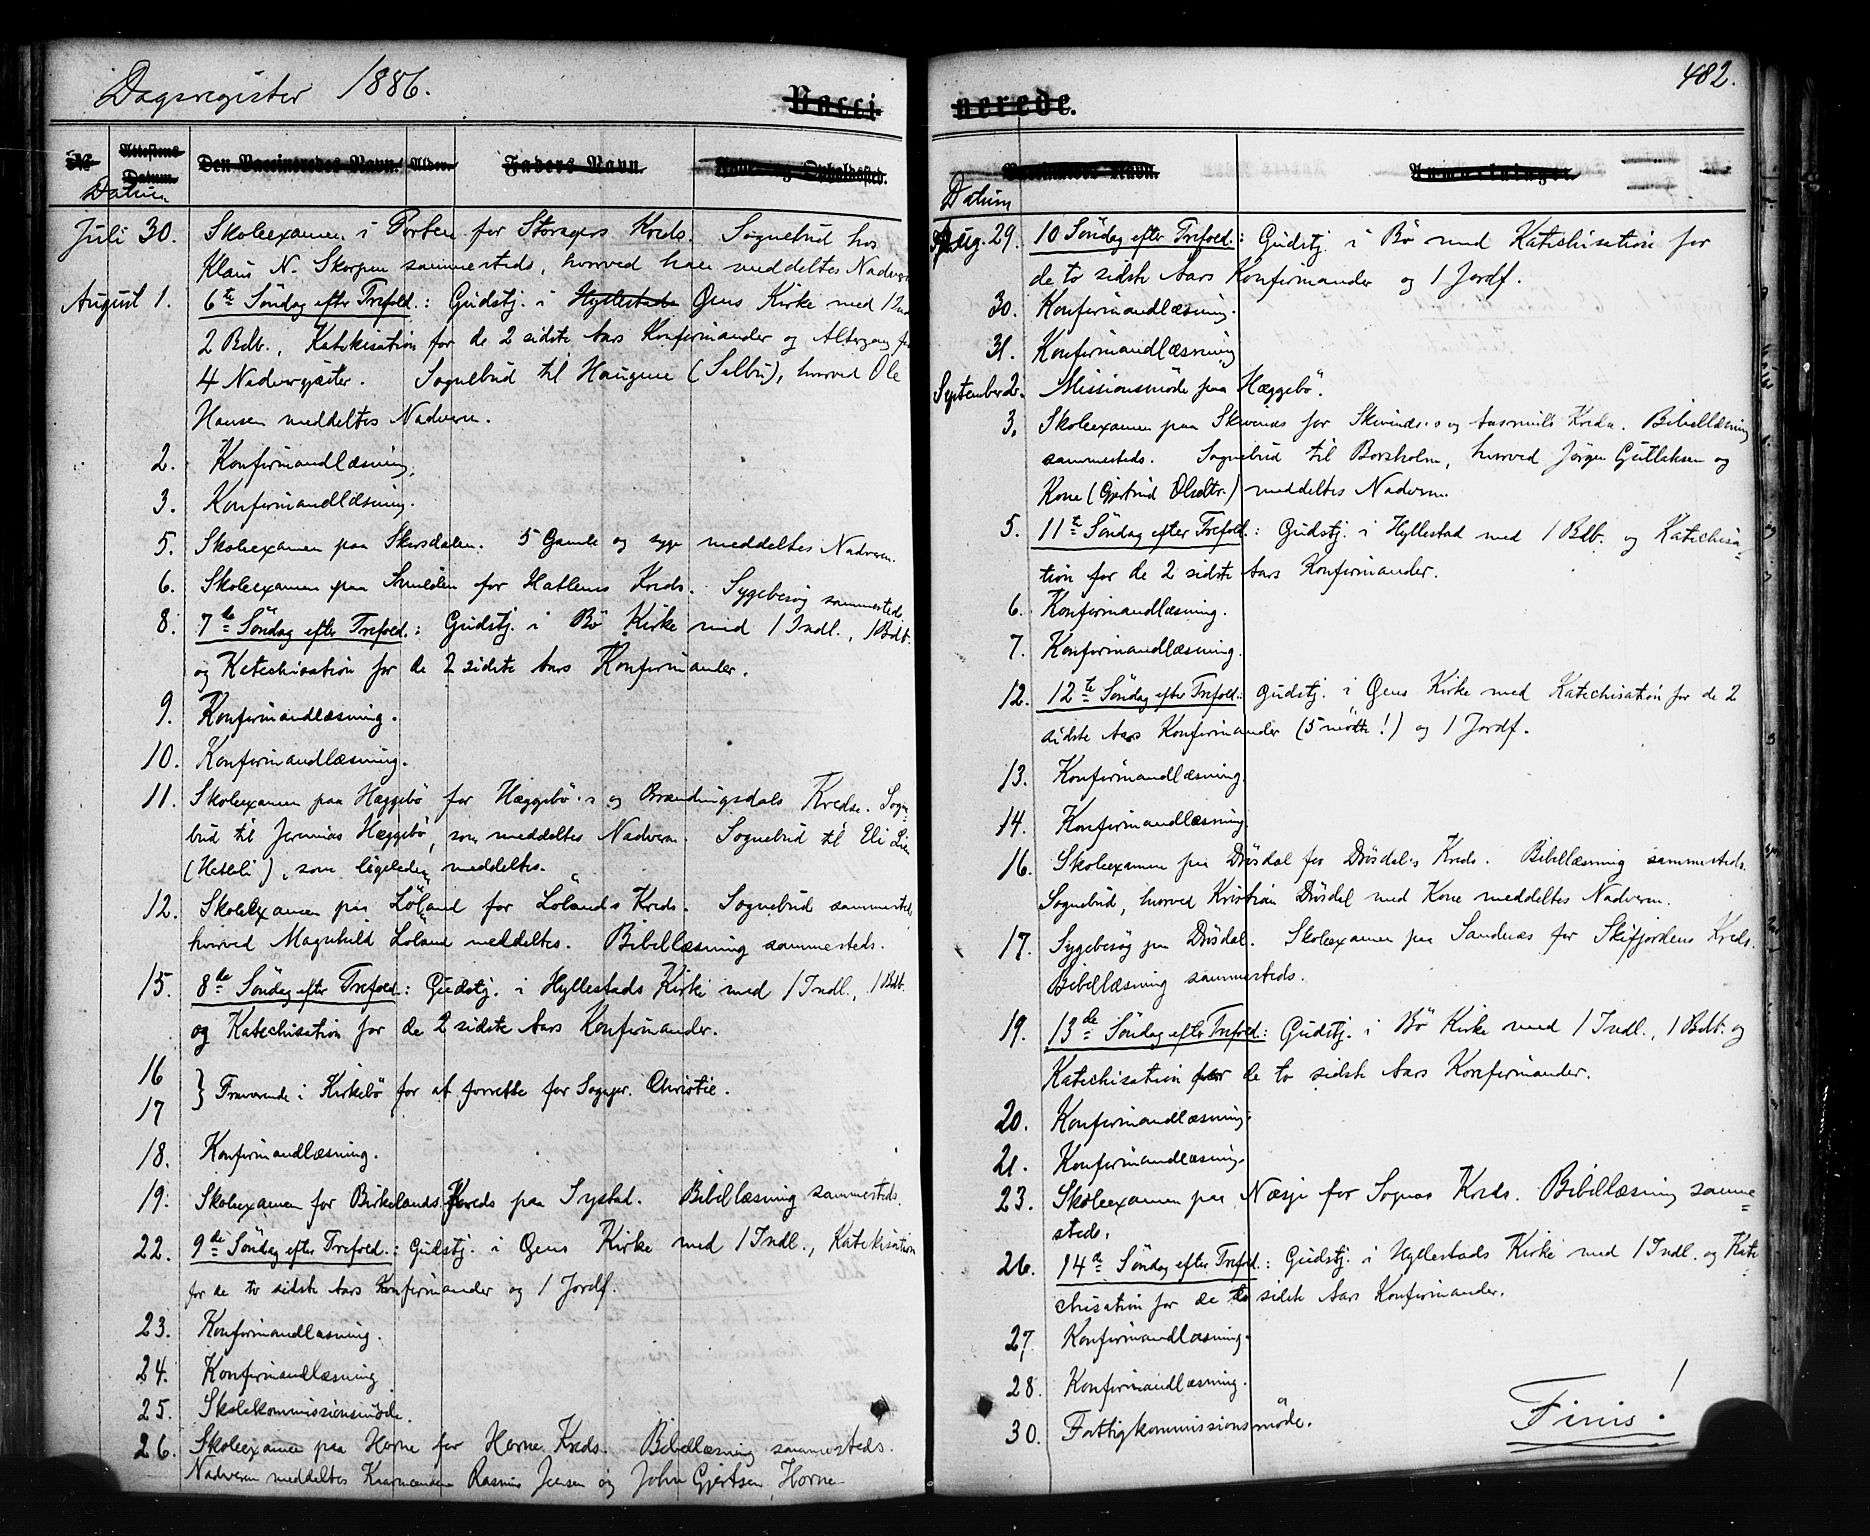 Dagsregister 1886.
Vacci
No
Attestens Datum.
Den Vaccineredes Navn.
Alder.
Faders Navn.
Navn og Opholdssted.
Datum
Juli 30. Skoleexamen i Porten for Storagers Kreds. Sognebud hos
Klaus N. Skorpen sammesteds, hvorved han meddeltes Nadver
August 1. 6te Søndag efter Trefold.: Gudstj. i Hyllestads Øens Kirke med 1 Ind
2 Bdb., Katekisation for de 2 sidste Aars Konfirmander og Altergang for
4 Nadvergjæster. Sognebud til Haugene (Salbu), hvorved Ole
Hansen meddeltes Nadveren.
2. Konfirmandlæsning.
3. Konfirmandlæsning.
5. Skoleexamen paa Skorsdalen. 5 Gamle og syge meddeltes Nadveren.
6. Skoleexamen paa for Hatlems Kreds. Sygebesøg sammesteds.
8. 7de Søndag efter Trefold.: Gudstj. i Bø Kirke med 1 Indl., 1 Bdb.
og Katechisation for de 2 sidste Aars Konfirmander.
9. Konfirmandlæsning.
10. Konfirmandlæsning.
11. Skoleexamen paa Hæggebø for Hæggebø-s og Brændingsdals Kredse. Sogne
bud til Jeremias Hæggebø, som meddeltes Nadveren. Sognebud til Eli Lien
(Hatleli), som ligeledes meddeltes.
12. Skoleexamen paa Løland for Lølands Kreds. Sognebud sammesteds
hvorved Magnhild Løland meddeltes. Bibellæsning sammesteds.
15. 8de Søndag efter Trefold.: Gudstj. i Hyllestads Kirke med 1 Indl., 1 Bdb.
og Katechisation for de 2 sidste Aars Konfirmander.
16
17 } Fraværende i Kirkebø for at forrette for Sognepr. Christie.
18. Konfirmandlæsning.
19. Skoleexamen for Birkelands Kreds paa Systad. Bibellæsning sammesteds.
22. 9de Søndag efter Trefold.: Gudstj. i Øens Kirke med 1 Indl., Katekisation
for de to sidste Aars Konfirmander og 1 Jordf.
23. Konfirmandlæsning.
24. Konfirmandlæsning
25. Skolekommissionsmøde.
26. Skoleexamen paa Horne for Horne Kreds. Bibellæsning sammesteds.
Nadveren meddeltes Rasmus Jensen og John Gjertsen, Horne
482.
nerede.
Vaccinators Navn.
Anmærkninger.
Datum
Aug. 29. 10 Søndag efter Trefold.: Gudstj. i Bø med Katechisation for
de to sidste Aars Konfirmander og 1 Jordf.
30. Konfirmandlæsning.
31. Konfirmandlæsning
September 2. Missionsmøde paa Hæggebø.
3. Skoleexamen paa Skivenes for Skivenæs-s og Kredse. Bibellæsning
sammesteds. Sognebud til Borsholm, hvorved Jørgen Gutleksen og
Kone (Gjertrud Olsdtr.) meddeltes Nadveren.
5. 11te Søndag efter Trefold.: Gudstj. i Hyllestad med 1 Bdb. og Katechisa=
tion for de 2 sidste Aars Konfirmander.
6. Konfirmandlæsning.
7. Konfirmandlæsning.
12. 12te Søndag efter Trefold.: Gudstj. i Øens Kirke med Katechisation for de 2
sidste Aars Konfirmander (5 mødte!) og 1 Jordf.
13. Konfirmandlæsning.
14. Konfirmandlæsning
16. Skoleexamen paa Drøsdal for Drøsdal-s Kreds. Bibellæsning sammesteds.
Sognebud, hvorved Kristian Drøsdal med Kone meddeltes Nadveren.
17. Sygebesøg paa Drøsdal. Skoleexamen paa Sandnæs for Skifjordens Kreds.
Bibellæsning sammesteds.
19. 13de Søndag efter Trefold.: Gudstj. i Bø Kirke med 1 Indl., 1 Bdb. og
Katechisation for de to sidste Aars Konfirmander.
20. Konfirmandlæsning.
21. Konfirmandlæsning.
23. Skoleexamen paa Næsje for Sognes Kreds. Bibellæsning samme=
steds.
26. 14de Søndag efter Trefold.: Gudstj. i Hyllestads Kirke med 1 Indl. og Kate=
chisation for de to sidste Aars Konfirmander.
27. Konfirmandlæsning.
28. Konfirmandlæsning.
30. Fattigkommissionsmøde.
Finis!